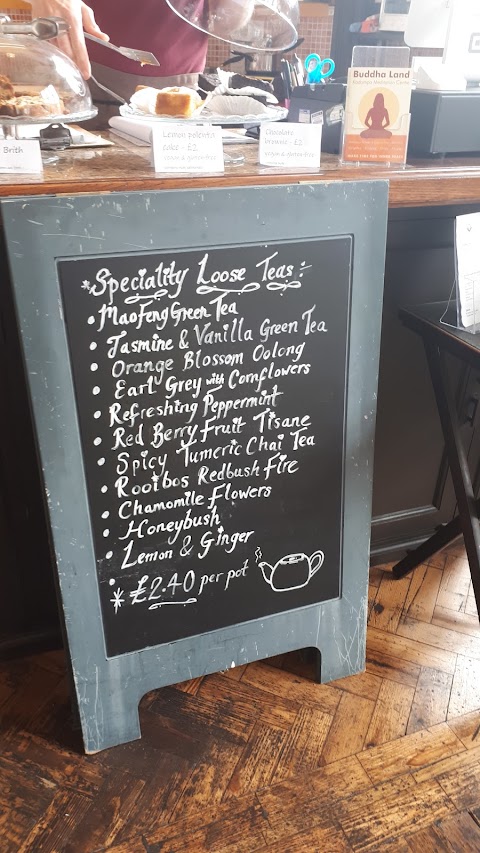 Brith
Lemon polenta
cake - £2
vegan & gluten free
Chocolate
brownie - £2
vegan & gluten free
Buddha Land
*Speciality Loose Teas:
• MaoFeng Green Tea
• Jasmine & Vanilla Green Tea
• Orange Blossom Oolong
• Earl Grey with Cornflowers
• Refreshing Peppermint
• Red Berry Fruit Tisane
• Spicy Tumeric Chai Tea
• Rooibos Redbush Fire
• Chamomile Flowers
• Honeybush
• Lemon & Ginger
* £2.40 per pot